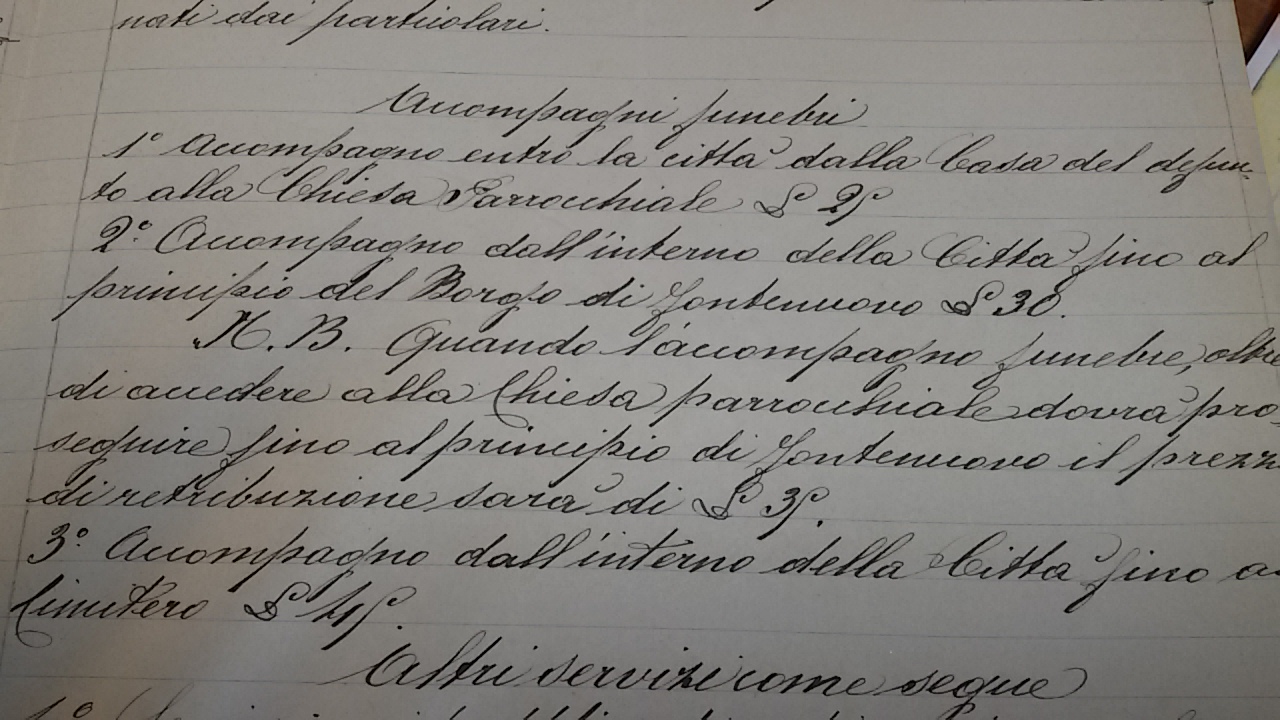 nati dai particolari.
Accompagni funebri
1° Accompagno entro la città dalla Casa del defun-
to alla Chiesa Parrocchiale £ 25
2° Accompagno dall'interno della Città fino al
principio del Borgo di Fontenuovo £ 30.
N. B. Quando l'accompagno funebre, oltre
di accedere alla Chiesa parrocchiale dovrà pro-
seguire fino al principio di Fontenuovo il prezz
di retribuzione sarà di £ 35.
3° Accompagno dall'interno della Città fino a
Cimitero £ 45.
Altri servizi come segue
1°